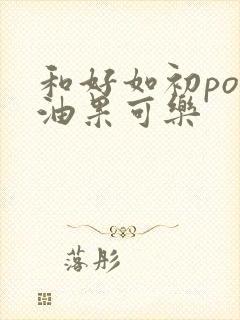 和好如初po
油果可樂
落彤